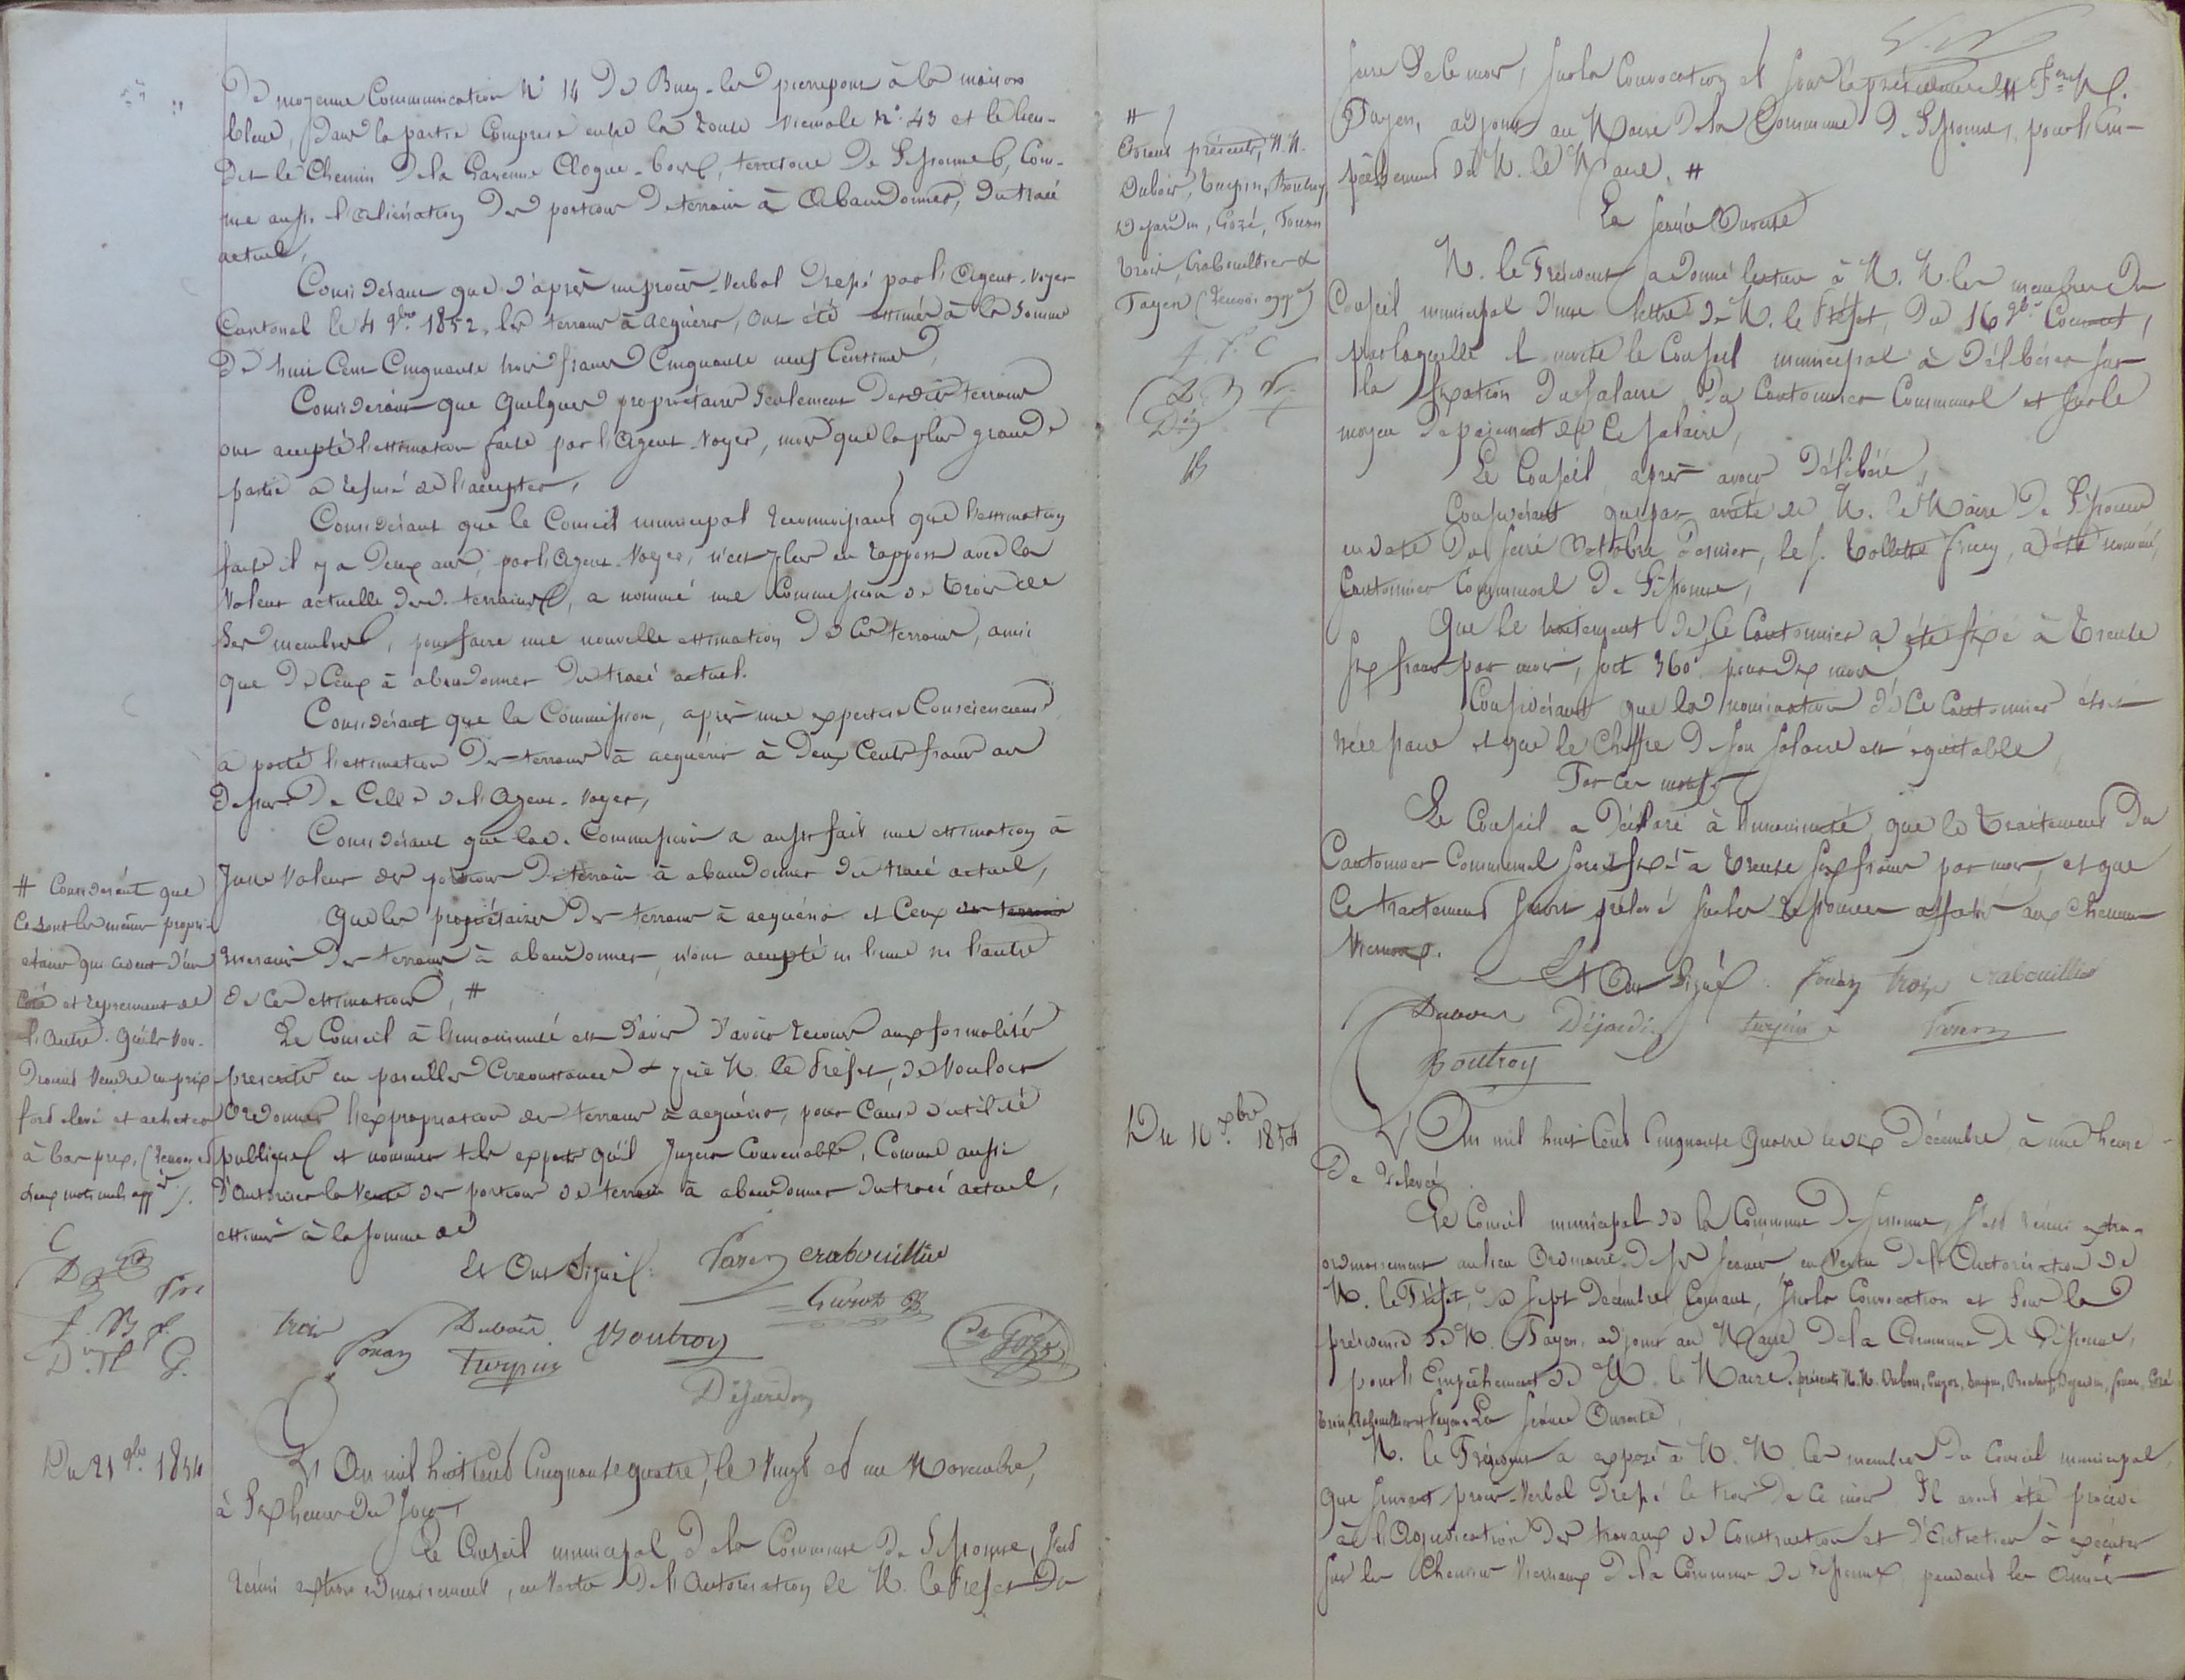 de moyenne Communication N° 14 de Bucy-les pierrepont à la maison
bleue, dans la partie Comprise entre la route vicinale N° 43 et le lieu-
dit le Chemin de la Garenne Cloque-, territoire de Sissonne, Com-
me aussi l'aliénation des portions de terrain à abandonner, du tracé
actuel,
Considérant que d'après un procès-verbal dressé par l'Agent-Voyer
Cantonal le 4 9bre 1852, les terrains à acquérir, ont été estimés à la somme
de huit Cent Cinquante trois francs Cinquante neuf Centimes,
Considérant que quelques propriétaires seulement desdits terrains
ont accepté l'estimation faite par l'Agent-Voyer, mais que la plus grande
partie a refusé de l'accepter,
Considérant que le Conseil municipal reconnaissant que l'estimation
faite il y a deux ans, par l'Agent-Voyer, n'est plus en rapport avec la
valeur actuelle desd. terrains, a nommé une Commission de trois de
ses membres, pour faire une nouvelle estimation de ces terrains, ainsi
que de Ceux à abandonner du tracé actuel.
Considérant que la Commission, après une expertise Consciencieuse,
a porté l'estimation des terrains à acquérir à deux Cents francs au
dessus de Celle de l'Agent-Voyer,
Considérant que lad. Commission a aussi fait une estimation à
juste valeur des portions de terrain à abandonner du tracé actuel,
Que les propriétaires des terrains à acquérir et Ceux des terrains
riverains des terrains à abandonner, n'ont accepté ni l'une ni l'autre
de ces estimations, #
# Considérant que
Ce sont les mêmes propri-
étaires qui cèdent d'un
côté et reprennent de
l'autre. Qu'ils vou-
draient vendre un prix
fort élevé et acheter
à bas prix, (renvoi et
deux mots nuls appés).
Le Conseil à l'unanimité est d'avis d'avoir recours aux formalités
prescrites en pareilles Circonstances & prie M. le Préfet, de vouloir
Ordonner l'expropriation des terrains à acquérir, pour Cause d'utilité
publique et nommer tels experts qu'il jugera Convenable, Comme aussi
d'Autoriser la Vente des portions de terrain à abandonner du tracé actuel,
estimés à la somme de
Et Ont Signé: Payen Crabouillier
Trois Fouan Dubois Turpin Boutroy
Dejardin Gozé
Du 21 9bre 1854
L'An mil huit cent Cinquante quatre, le Vingt et un Novembre,
à Six heures du Soir,
Le Conseil municipal de la Commune de Sissonne, s'est
réuni extraordinairement, en vertu de l'Autorisation de M. le Préfet du
seize de Ce mois, sur la Convocation et sous la présidence de M.
Payen, adjoint au Maire de la Commune de Sissonne, pour l'Em-
pêchement de M. le Maire. #
#
Etaient présents, M.M.
Dubois, Turpin, Boutroy,
Dejardin, Gozé, Fouan
Trois, Crabouillier &
Payen (renvoi appé)
La séance Ouverte
M. le Président a donné lecture à M. M. les membres du
Conseil municipal d'une lettre de M. le Préfet, du 16 9bre Courant,
par laquelle il invite le Conseil municipal à délibérer sur
la fixation du salaire du Cantonnier Communal et sur le
moyen de paiement de Ce salaire,
Le Conseil après avoir délibéré,
Considérant que par arrêté de M. le Maire de Sissonne
en date du seize Octobre dernier, le s. Collette, a été nommé,
Cantonnier Communal de Sissonne,
Que le traitement de Ce Cantonnier a été fixé à Trente
six francs par mois, soit 360f. pour dix mois
Considérant que la nomination de Ce Cantonnier était
nécessaire et que le Chiffre de son salaire est équitable,
Par Ces motifs
Le Conseil a déclaré à l'unanimité, que le Traitement du
Cantonnier Communal serait fixé à Trente six francs par mois, et que
Ce traitement serait prélevé sur les ressources affectées aux chemins
vicinaux.
Et Ont Signé: Fouan Trois Crabouillier
Dubois Déjardin Turpin Payen
Boutroy
Du 10 Xbre 1854
L'An mil huit Cent Cinquante Quatre le dix Décembre à une heure
de relevée
Le Conseil municipal de la Commune de Sissonne, s'est réuni extra-
ordinairement au lieu Ordinaire de ses séances, en Vertu de l'Autorisation de
M. le Préfet, du sept Décembre Courant, sur la Convocation et sous la
présidence de M. Payen, adjoint au Maire de la Commune de Sissonne,
pour l'Empêchement de M. le Maire. présents M.M. Dubois, Turpin, Boutroy, Dejardin, Fouan, Gozé
Trois, Crabouillier et Payen. La séance Ouverte,
M. le Président a exposé à M. M. les membres du Conseil municipal,
que suivant procès-Verbal dressé le trois de Ce mois Il avait été procédé
à l'Adjudication des travaux de Construction et d'Entretien à exécuter
sur les Chemins Vicinaux de la Commune de Sissonne, pendant les Années